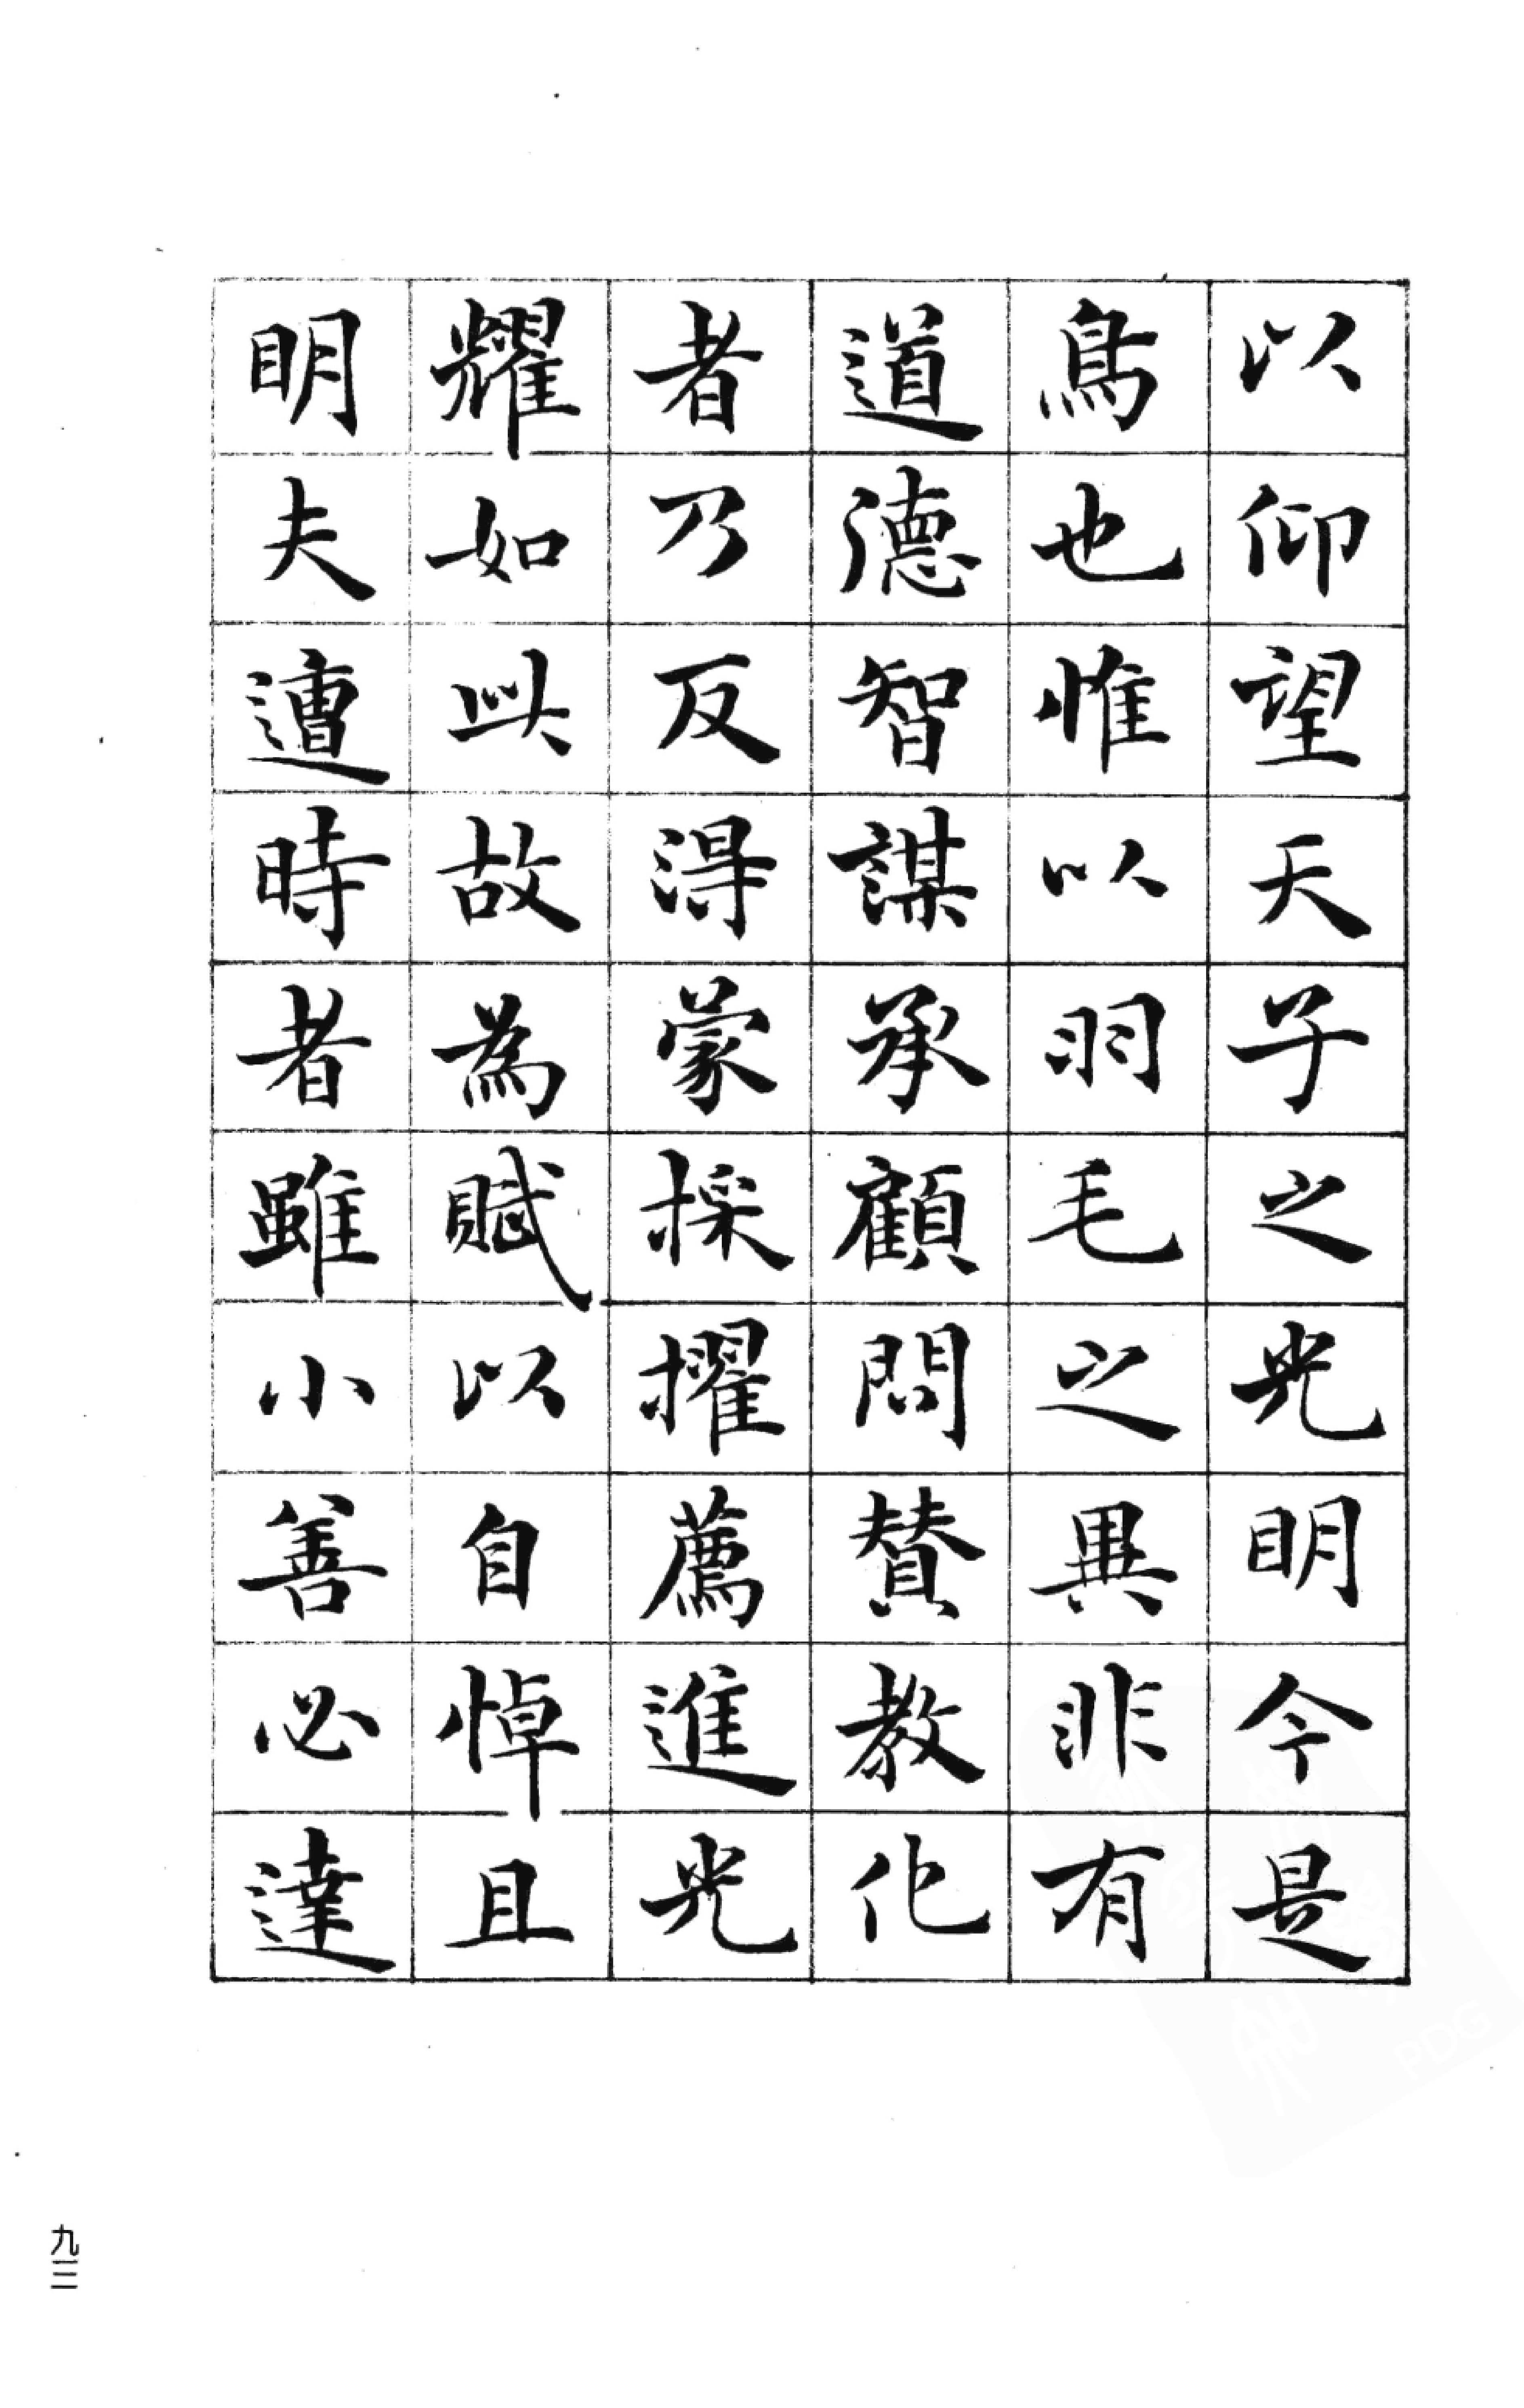 以仰望天子之光明今是
鳥也惟以羽毛之異非有
道德智謀承顧問賛教化
者乃反得蒙採擢薦進光
耀如此故為賦以自悼且
明夫遭時者雖小善必達
九三